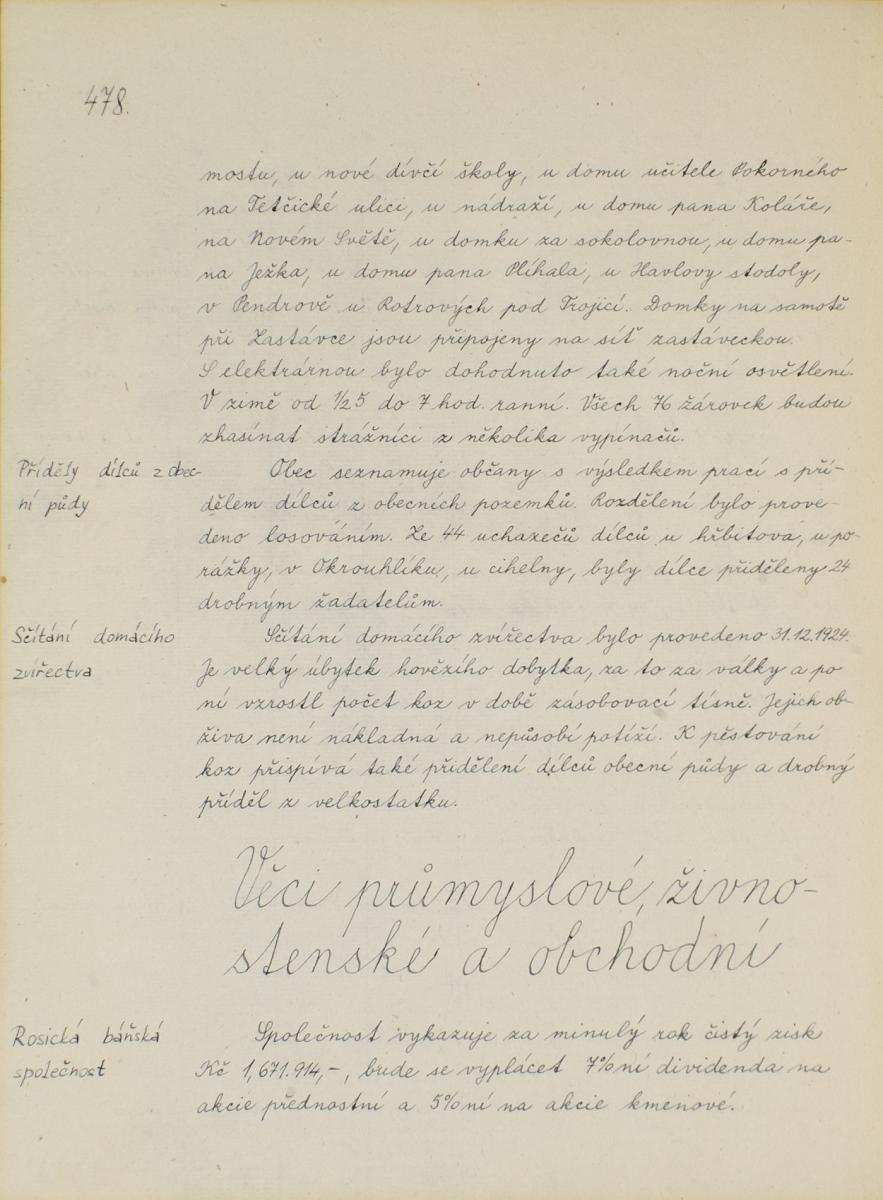 478.
mostu, u nové dívčí školy, u domu učitele Pokorného
na Tetčické ulici, u nádraží, u domu pana Koláře,
na Novém Světě, u domku za sokolovnou, u domu pa-
na Ježka, u domu pana Plíhala, u Havlovy stodoly,
v Pendrově u Kotrových pod Trojicí. Domky na samotě
při Zastávce jsou připojeny na síť zastáveckou.
S elektrárnou bylo dohodnuto také noční osvětlení.
V zimě od 1/2 5 do 7 hod. ranní. Všech 76 žárovek budou
zhasínat strážníci z několika vypínačů.
Příděly dílců z obec-
ní půdy
Obec seznamuje občany s výsledkem prací s pří-
dělem dílců z obecních pozemků. Rozdělení bylo prove-
deno losováním. Ze 44 uchazečů dílců u hřbitova, u po-
rážky, v Okrouhlíku, u cihelny, byly dílce přiděleny 24
drobným žadatelům.
Sčítání domácího
zvířectva
Sčítání domácího zvířectva bylo provedeno 31.12.1924.
Je velký úbytek hovězího dobytka, za to za války a po
ní vzrostl počet koz v době zásobovací tísně. Jejich ob-
živa není nákladná a nepůsobí potíží. K pěstování
koz přispívá také přidělení dílců obecní půdy a drobný
příděl z velkostatku.
Věci průmyslové, živno-
stenské a obchodní
Rosická báňská
společnost
Společnost vykazuje za minulý rok čistý zisk
Kč 1,671.914,-, bude se vyplácet 7%ní dividenda na
akcie přednostní a 5%ní na akcie kmenové.